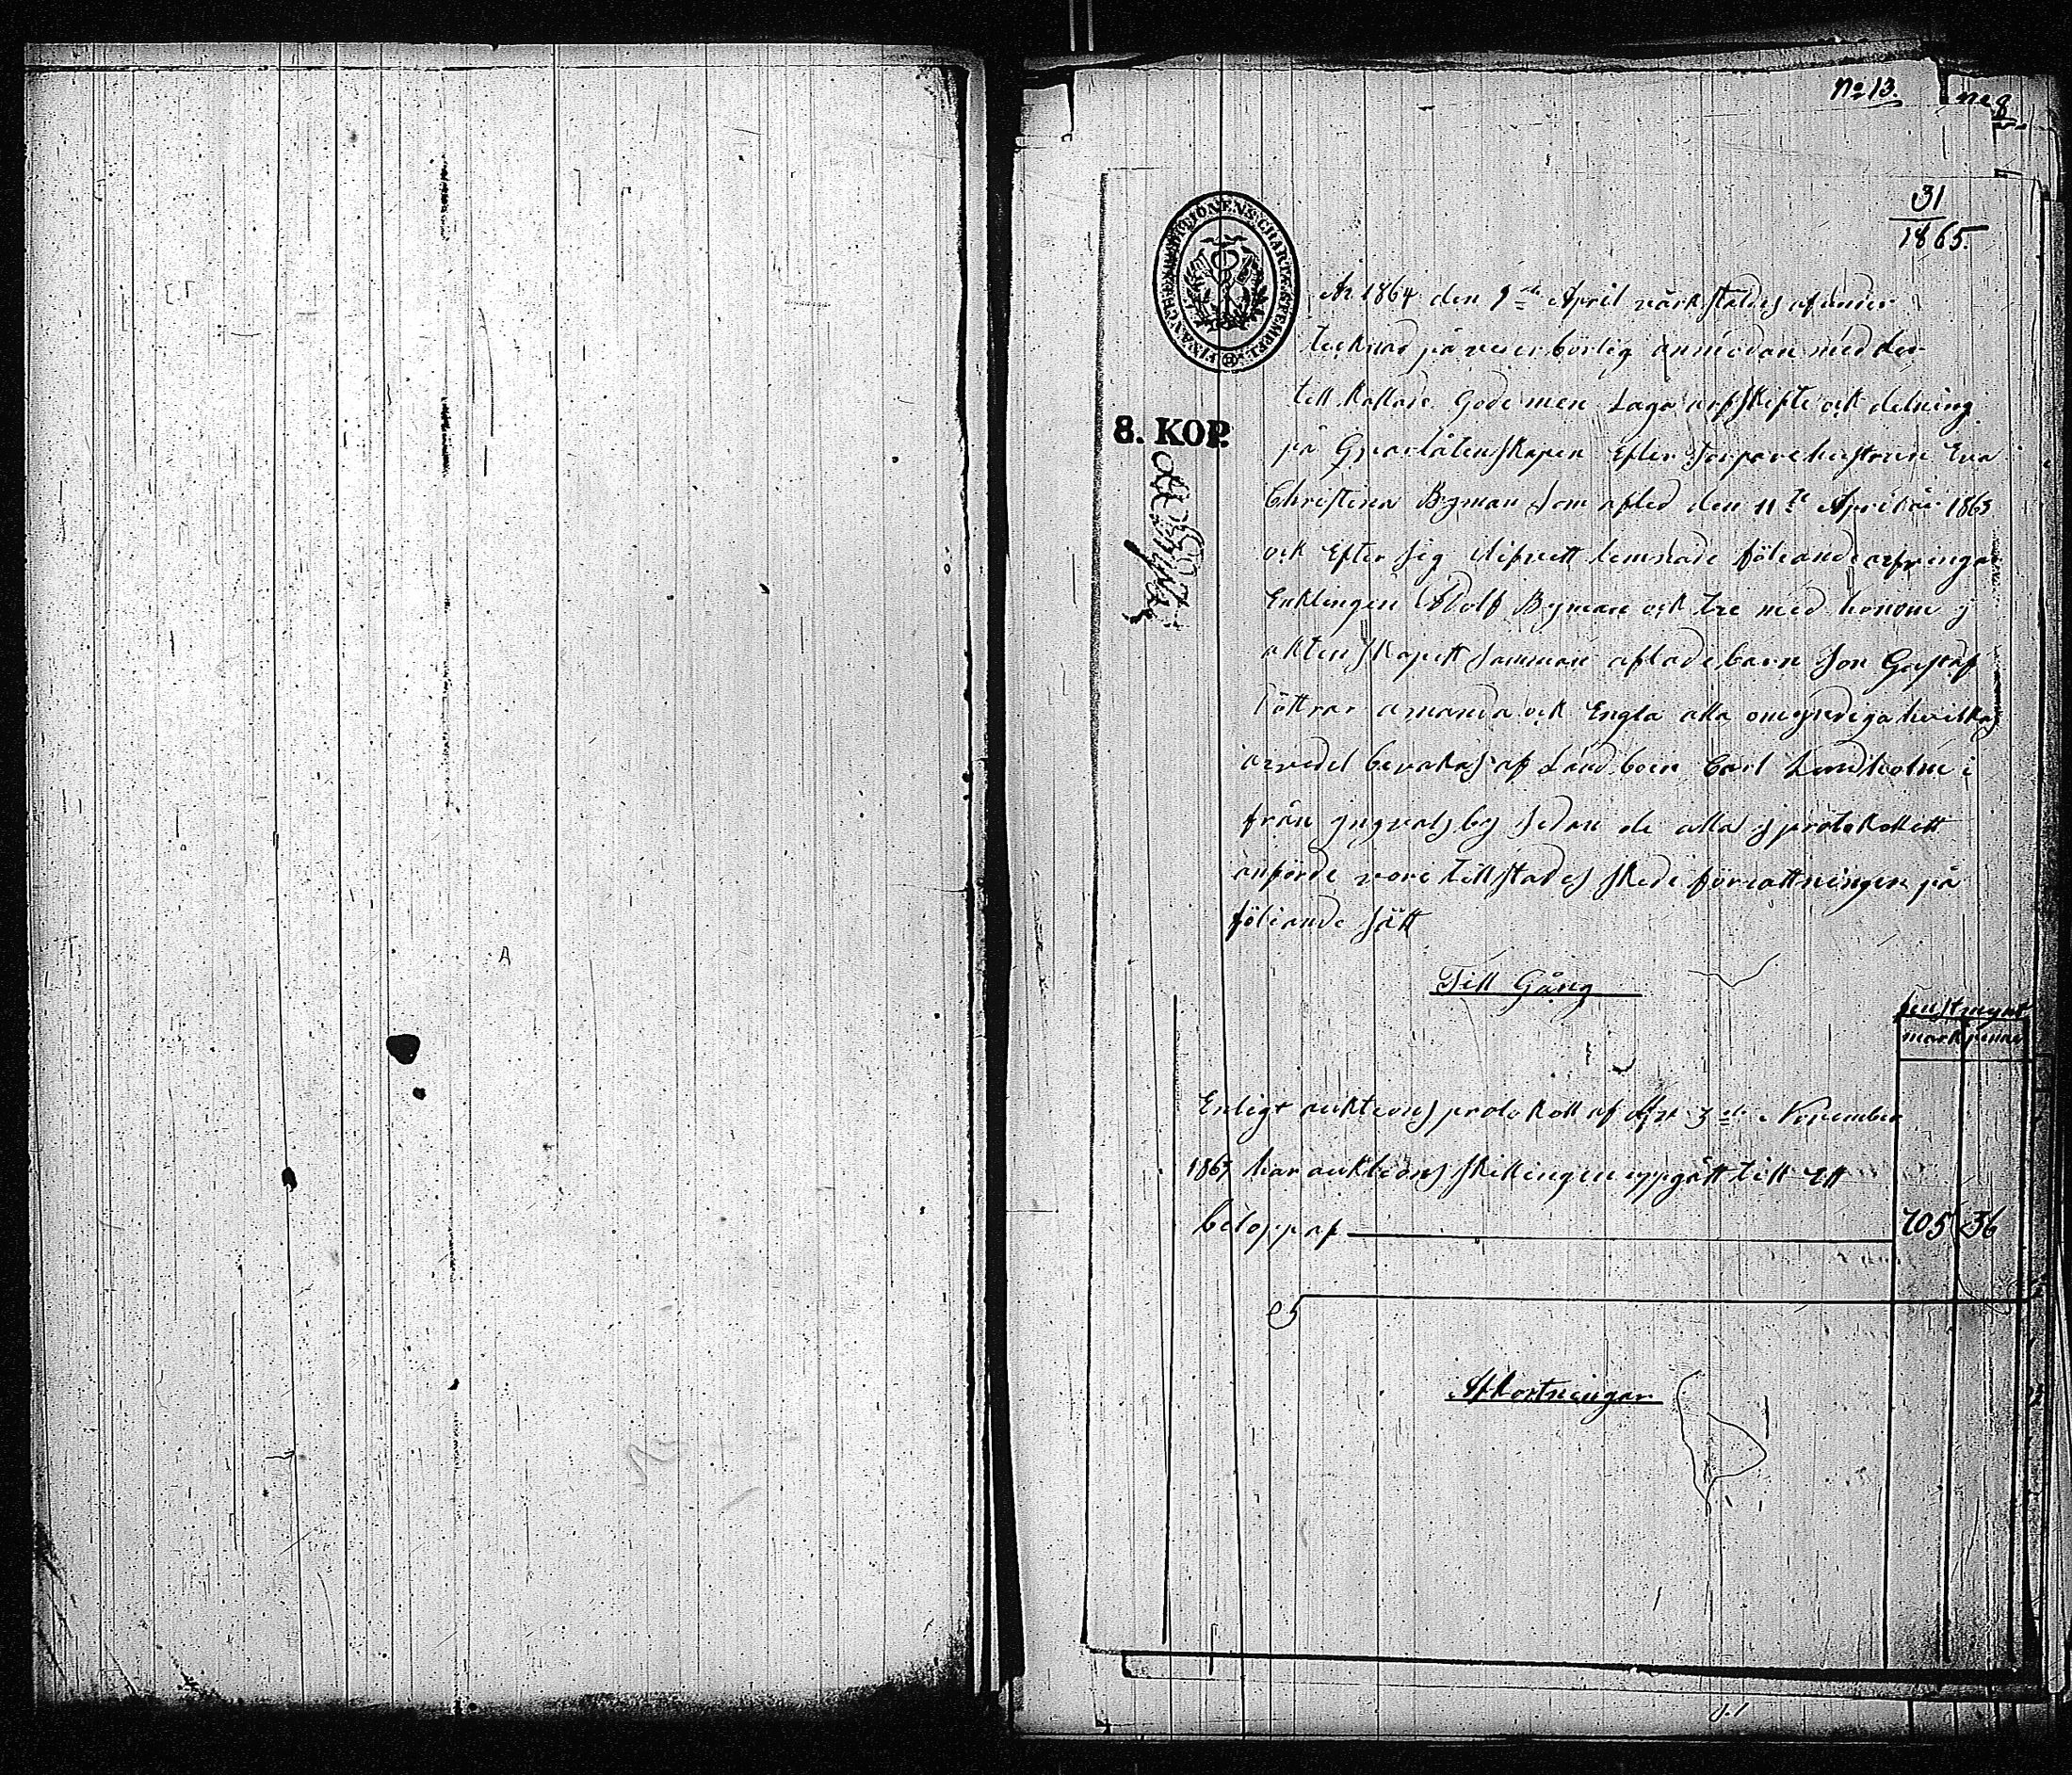 No 13.
no 8
31
1865.
FINANCE EXPEDITIONENS CHARTÆ STEMPEL
8. KOP.
År 1864 den 9de April värkstaldes af under
tecknad på vederbörlig anmodan med der
till kallade Gode men Laga arfskifte ock delning
på Qvarlåtenskapen Efter Torpare hustrun Eva
Christina Byman som afled den 11te April år 1863
ock Efter sig i lifvett lemnade föliande arfvingar
Enklingen Adolf Byman ock tre med honom j
aktenskapett samman aflade barn Son Gustaf
Döttrar amanda ock Engla alla omyndiga hvilkas
arvedel bevakas af Landboen Carl Lindholm i
från yngvalsby sedan de alla j protokollett
anförde vore tillstades skede förrattningen på
föliande sätt
Till Gång
finst mynt
mark penni
Enligt auktions protokoll af den 3de November
1863 har auktions skillingen uppgått till Ett
belopp af 705 36
Afkortningar